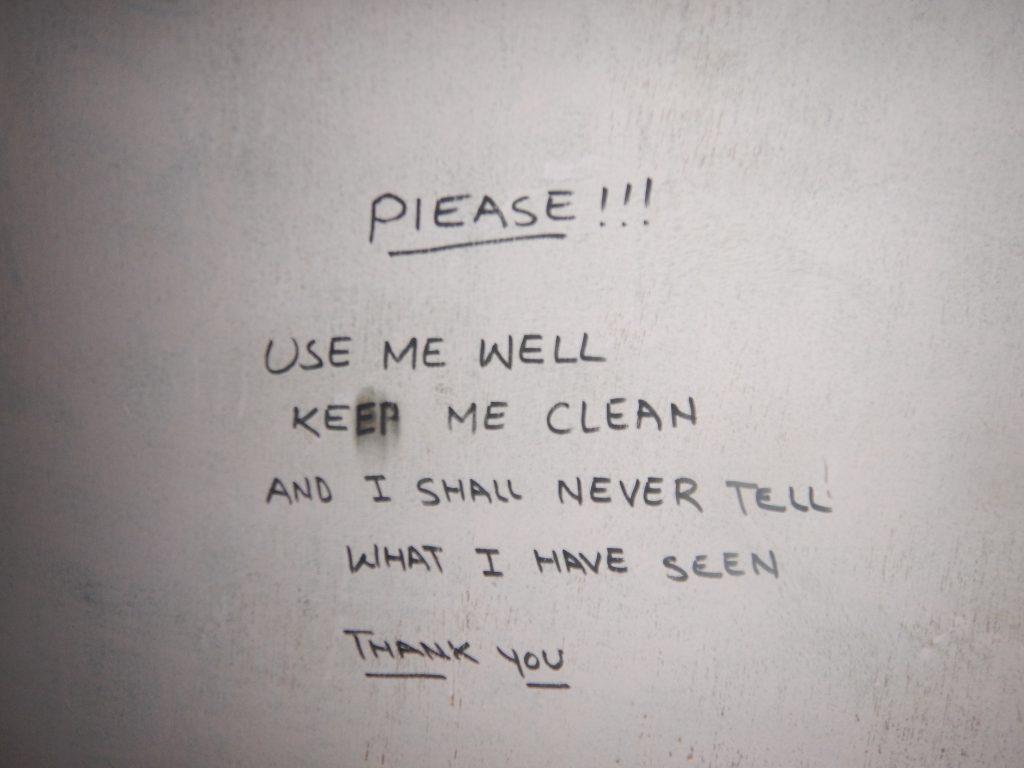 PlEASE !!!
USE ME WELL
KEEP ME CLEAN
AND I SHALL NEVER TELL
WHAT I HAVE SEEN
THANK YOU